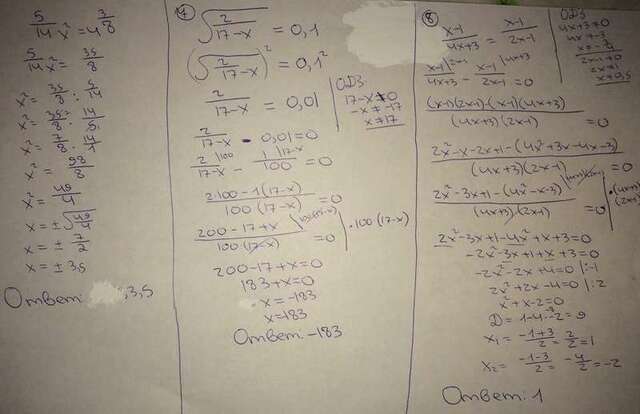 5/14 x² = 4 3/8
5/14 x² = 35/8
x² = 35/8 : 5/14
x² = 35/8 · 14/5
x² = 7/8 · 14/1
x² = 98/8
x² = 49/4
x = ±√49/4
x = ± 7/2
x = ± 3,5
Ответ: 3,5
7
√2/17-x = 0,1
(√2/17-x)² = 0,1²
2/17-x = 0,01
ОДЗ
17-x≠0
-x≠-17
x≠17
2/17-x - 0,01=0
2/17-x |100 - 1/100 |17-x = 0
2·100-1(17-x)/100(17-x) = 0
200-17+x/100(17-x) = 0 |·100(17-x)
200-17+x=0
183+x=0
x=-183
x=183
Ответ: -183
8
x-1/4x+3 = x-1/2x-1
ОДЗ
4x+3≠0
4x≠-3
2x-1≠0
2x≠1
x≠0,5
x-1/4x+3 |2x-1 - x-1/2x-1 |4x+3 = 0
(x-1)(2x-1)-(x-1)(4x+3)/(4x+3)(2x-1) = 0
2x²-x-2x+1-(4x²+3x-4x-3)/(4x+3)(2x-1) = 0
2x²-3x+1-(4x²-x-3)/(4x+3)(2x-1) = 0 |·(4x+3)(2x-1)
2x²-3x+1-4x²+x+3=0
-2x²-3x+1+x+3=0
-2x²-2x+4=0 |:-1
2x²+2x-4=0 |:2
x²+x-2=0
D = 1-4·-2=9
x₁ = -1+3/2 = 2/2 = 1
x₂ = -1-3/2 = -4/2 = -2
Ответ: 1